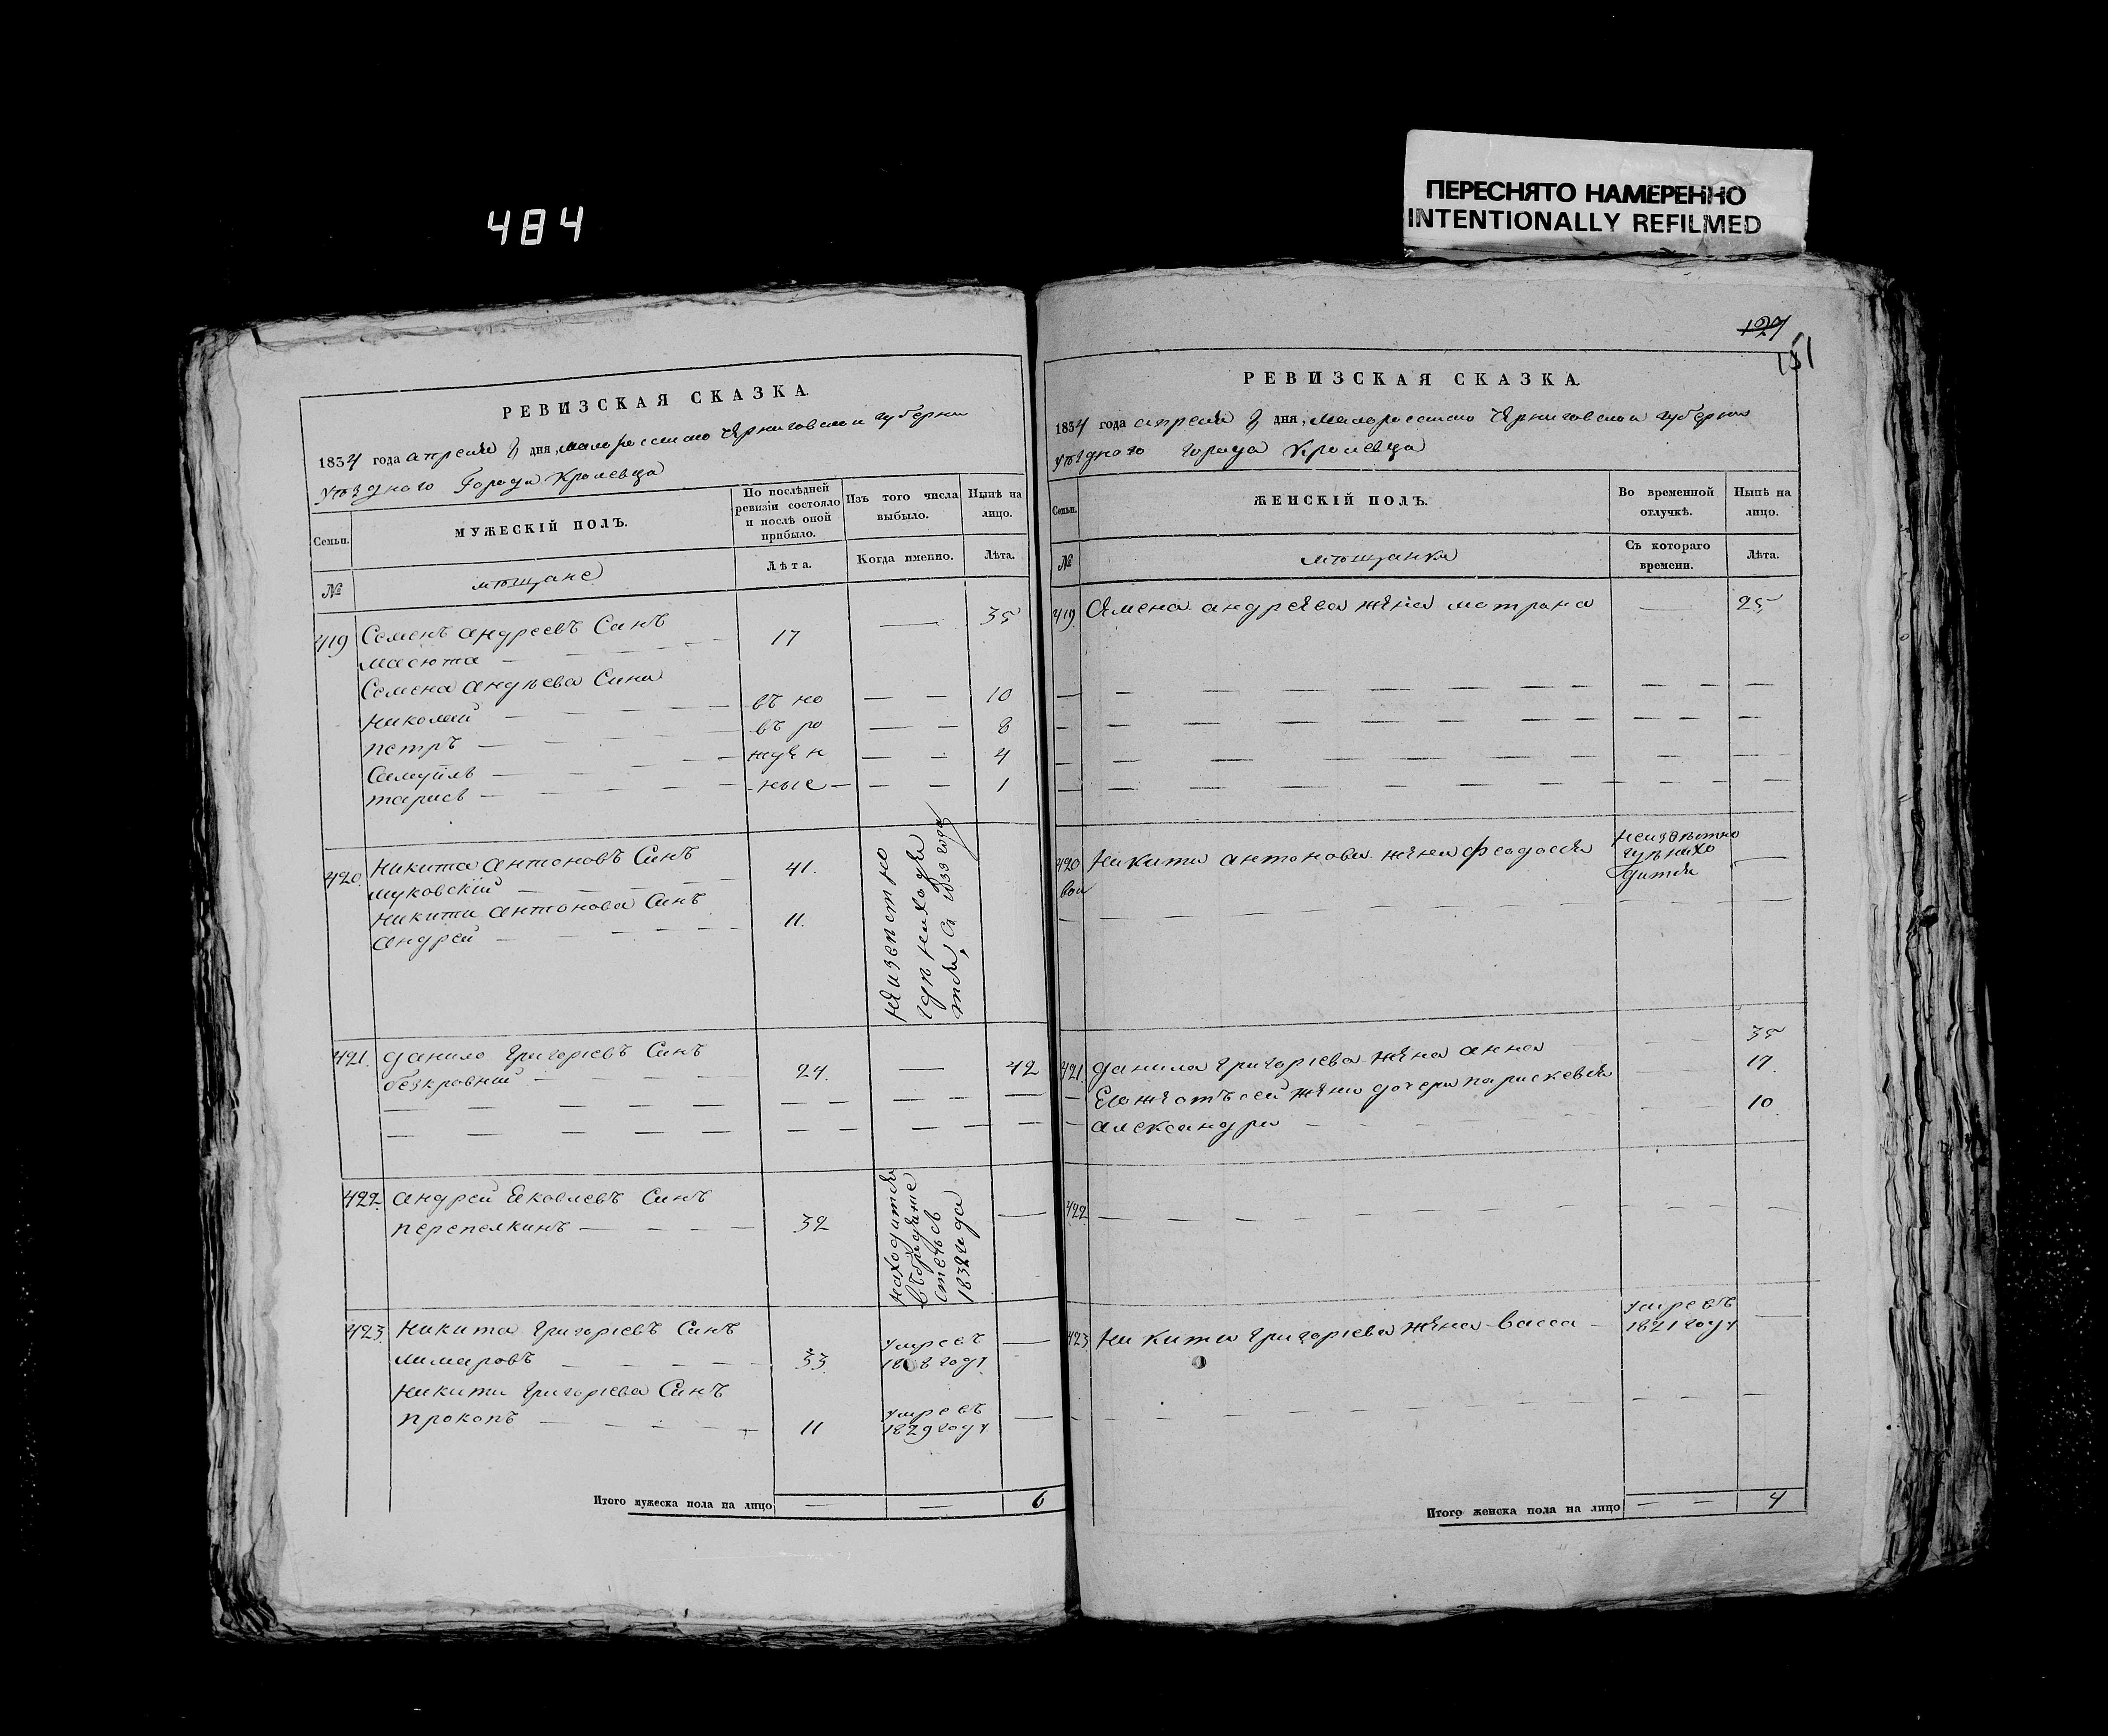 484
ПЕРЕСНЯТО НАМЕРЕННО
INTENTIONALLY REFILMED
РЕВИЗСКАЯ СКАЗКА.
1834 года апреля дня, малороссиско Черниговской губернии
уѣзднаго Города Кролевца
Семьи.
МУЖЕСКІЙ ПОЛЪ.
По послѣдней ревизіи состояло и послѣ оной прибыло.
Изъ того числа выбыло.
Нынѣ на лицо.
№
мѣщане
Лѣта.
Когда именно.
Лѣта.
419 Семенъ андреевъ Синъ 17 — 35
масюта
Семена андреева Сини
николай въ но — — 10
петръ въ ро — — 8
Самуйлъ жден — — 4
тарасъ ные — — 1
420 Никита антоновъ Синъ 41.
муковскій
никити антонова Синъ
андрей 11.
неизвестно
гдѣ находя
тся, Съ 1833 года
421. данило григоріевъ Синъ
безкровній 24. — 42
422. андрей Яковлевъ Синъ
перепелкинъ 32
находится
въ бродяже
стве съ
1832 года
423. Никита григоріевъ Синъ
лимаровъ 33.
умре въ
1828 году
никити григоріева Синъ
прокопъ 11
умре въ
1829 году
Итого мужеска пола на лицо — — 6
127
151
РЕВИЗСКАЯ СКАЗКА.
1834 года апреля дня, малороссиско Черниговской губернии
уѣзднаго города Кролевца
Семьи.
ЖЕНСКІЙ ПОЛЪ.
Во временной отлучкѣ.
Нынѣ на лицо.
№
мѣщанки
Съ котораго времени.
Лѣта.
419. Семена андреева жена мотрона — 25
420 Никити антонова жена феодосія
неизвѣстно
гдѣ нахо
дится
421. данила григоріева жена анна 35
Его же отъ сей жени дочери параскевія 17.
александра 10.
422
423 Никити григоріева жена васса
умре въ
1821 году
Итого женска пола на лицо — — 4